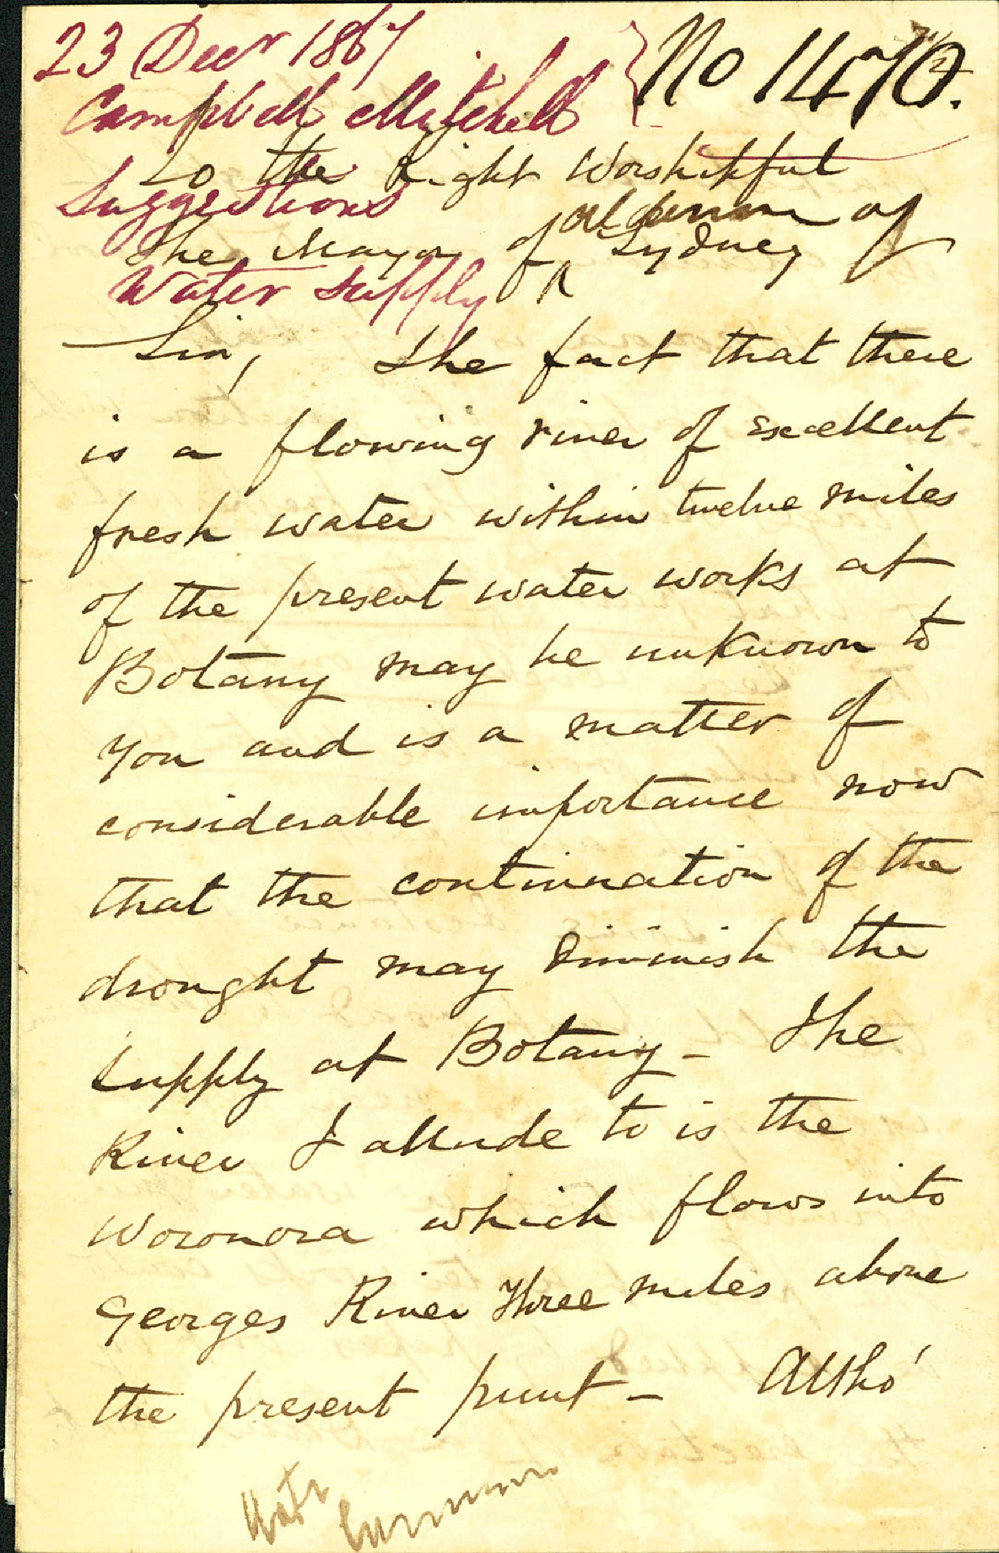 23 Decr 1867
Campbell Mitchell
Suggestions
Water Supply
No 1470.
To the Right Worshipful
The Mayor of Aldermen of Sydney
Sir, The fact that there
is a flowing river of excellent
fresh water within twelve miles
of the present water works at
Botany may be unknown to
you and is a matter of
considerable importance now
that the continuation of the
drought may diminish the
supply at Botany - The
River I allude to is the
Woronora which flows into
Georges River Three miles above
the present punt - Altho'